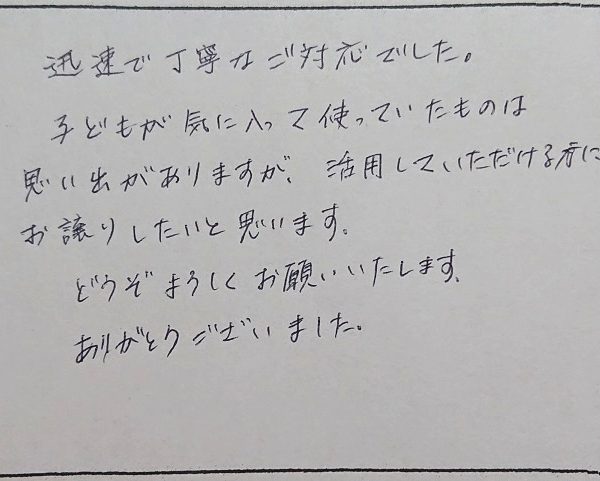 迅速で丁寧なご対応でした。
子どもが気に入って使っていたものは
思い出がありますが、活用していただける方に
お譲りしたいと思います。
どうぞよろしくお願いいたします。
ありがとうございました。